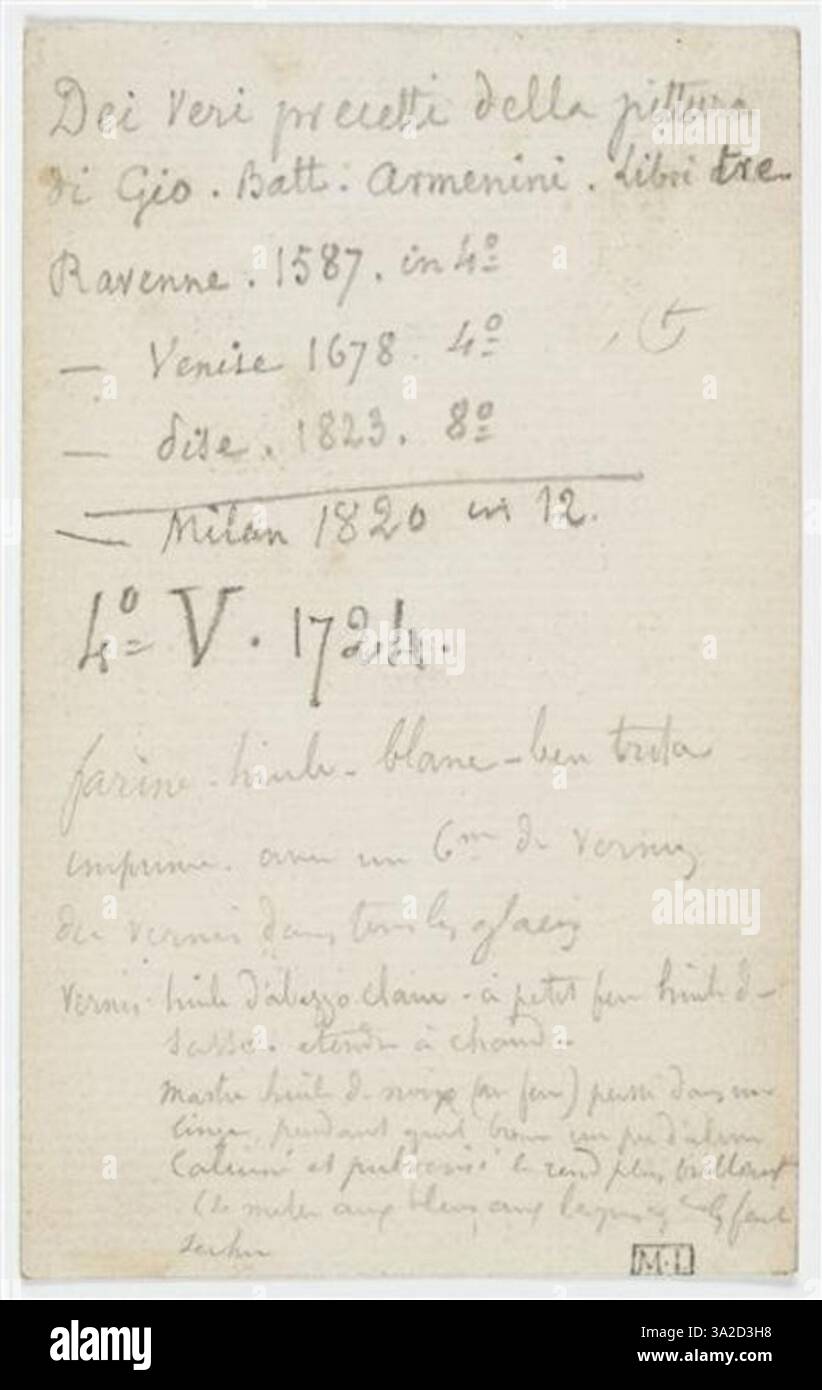 Dei Veri precetti della pittura
di Gio. Batt. Armenini. Libri tre
Ravenne. 1587. in 4º
— Venise 1678. 4º
— dise. 1823. 8º
— Milan 1820 in 12.
4º V. 1724.
farine - huile - blanc - ben trita
imprimer. avec un 6me de vernis
du vernis dans tous les glacis
Vernis huile d'abezzo claire - à petit feu huile de
sasso. etendre à chaud.
Mastic huile de noix (au feu) passé dans un
linge, pendant qu'il un peu d'alun
Calciné et pulverisé le rend plus brillant
meler aux bleus, aux fait
secher
M.I.
alamy
Image ID: 3A2D3H8
www.alamy.com